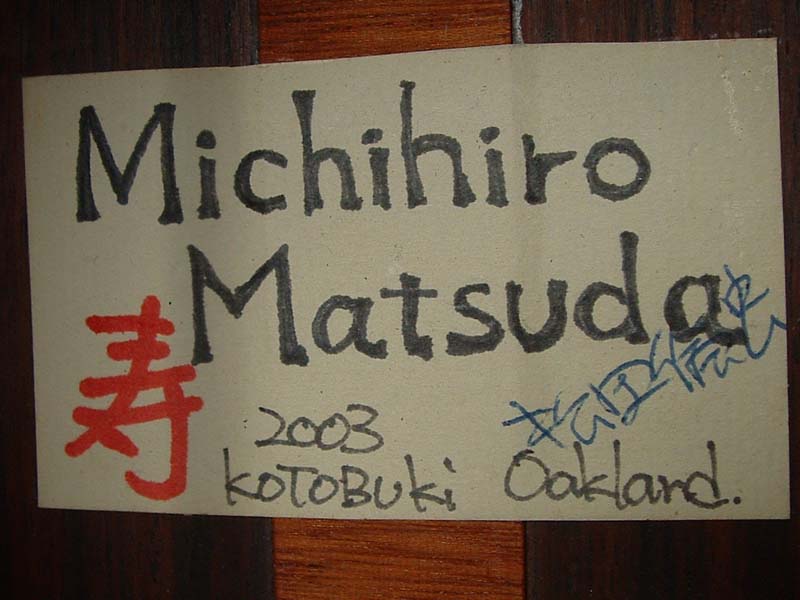 Michihiro
Matsuda
寿
2003
KOTOBUKi Oakland.